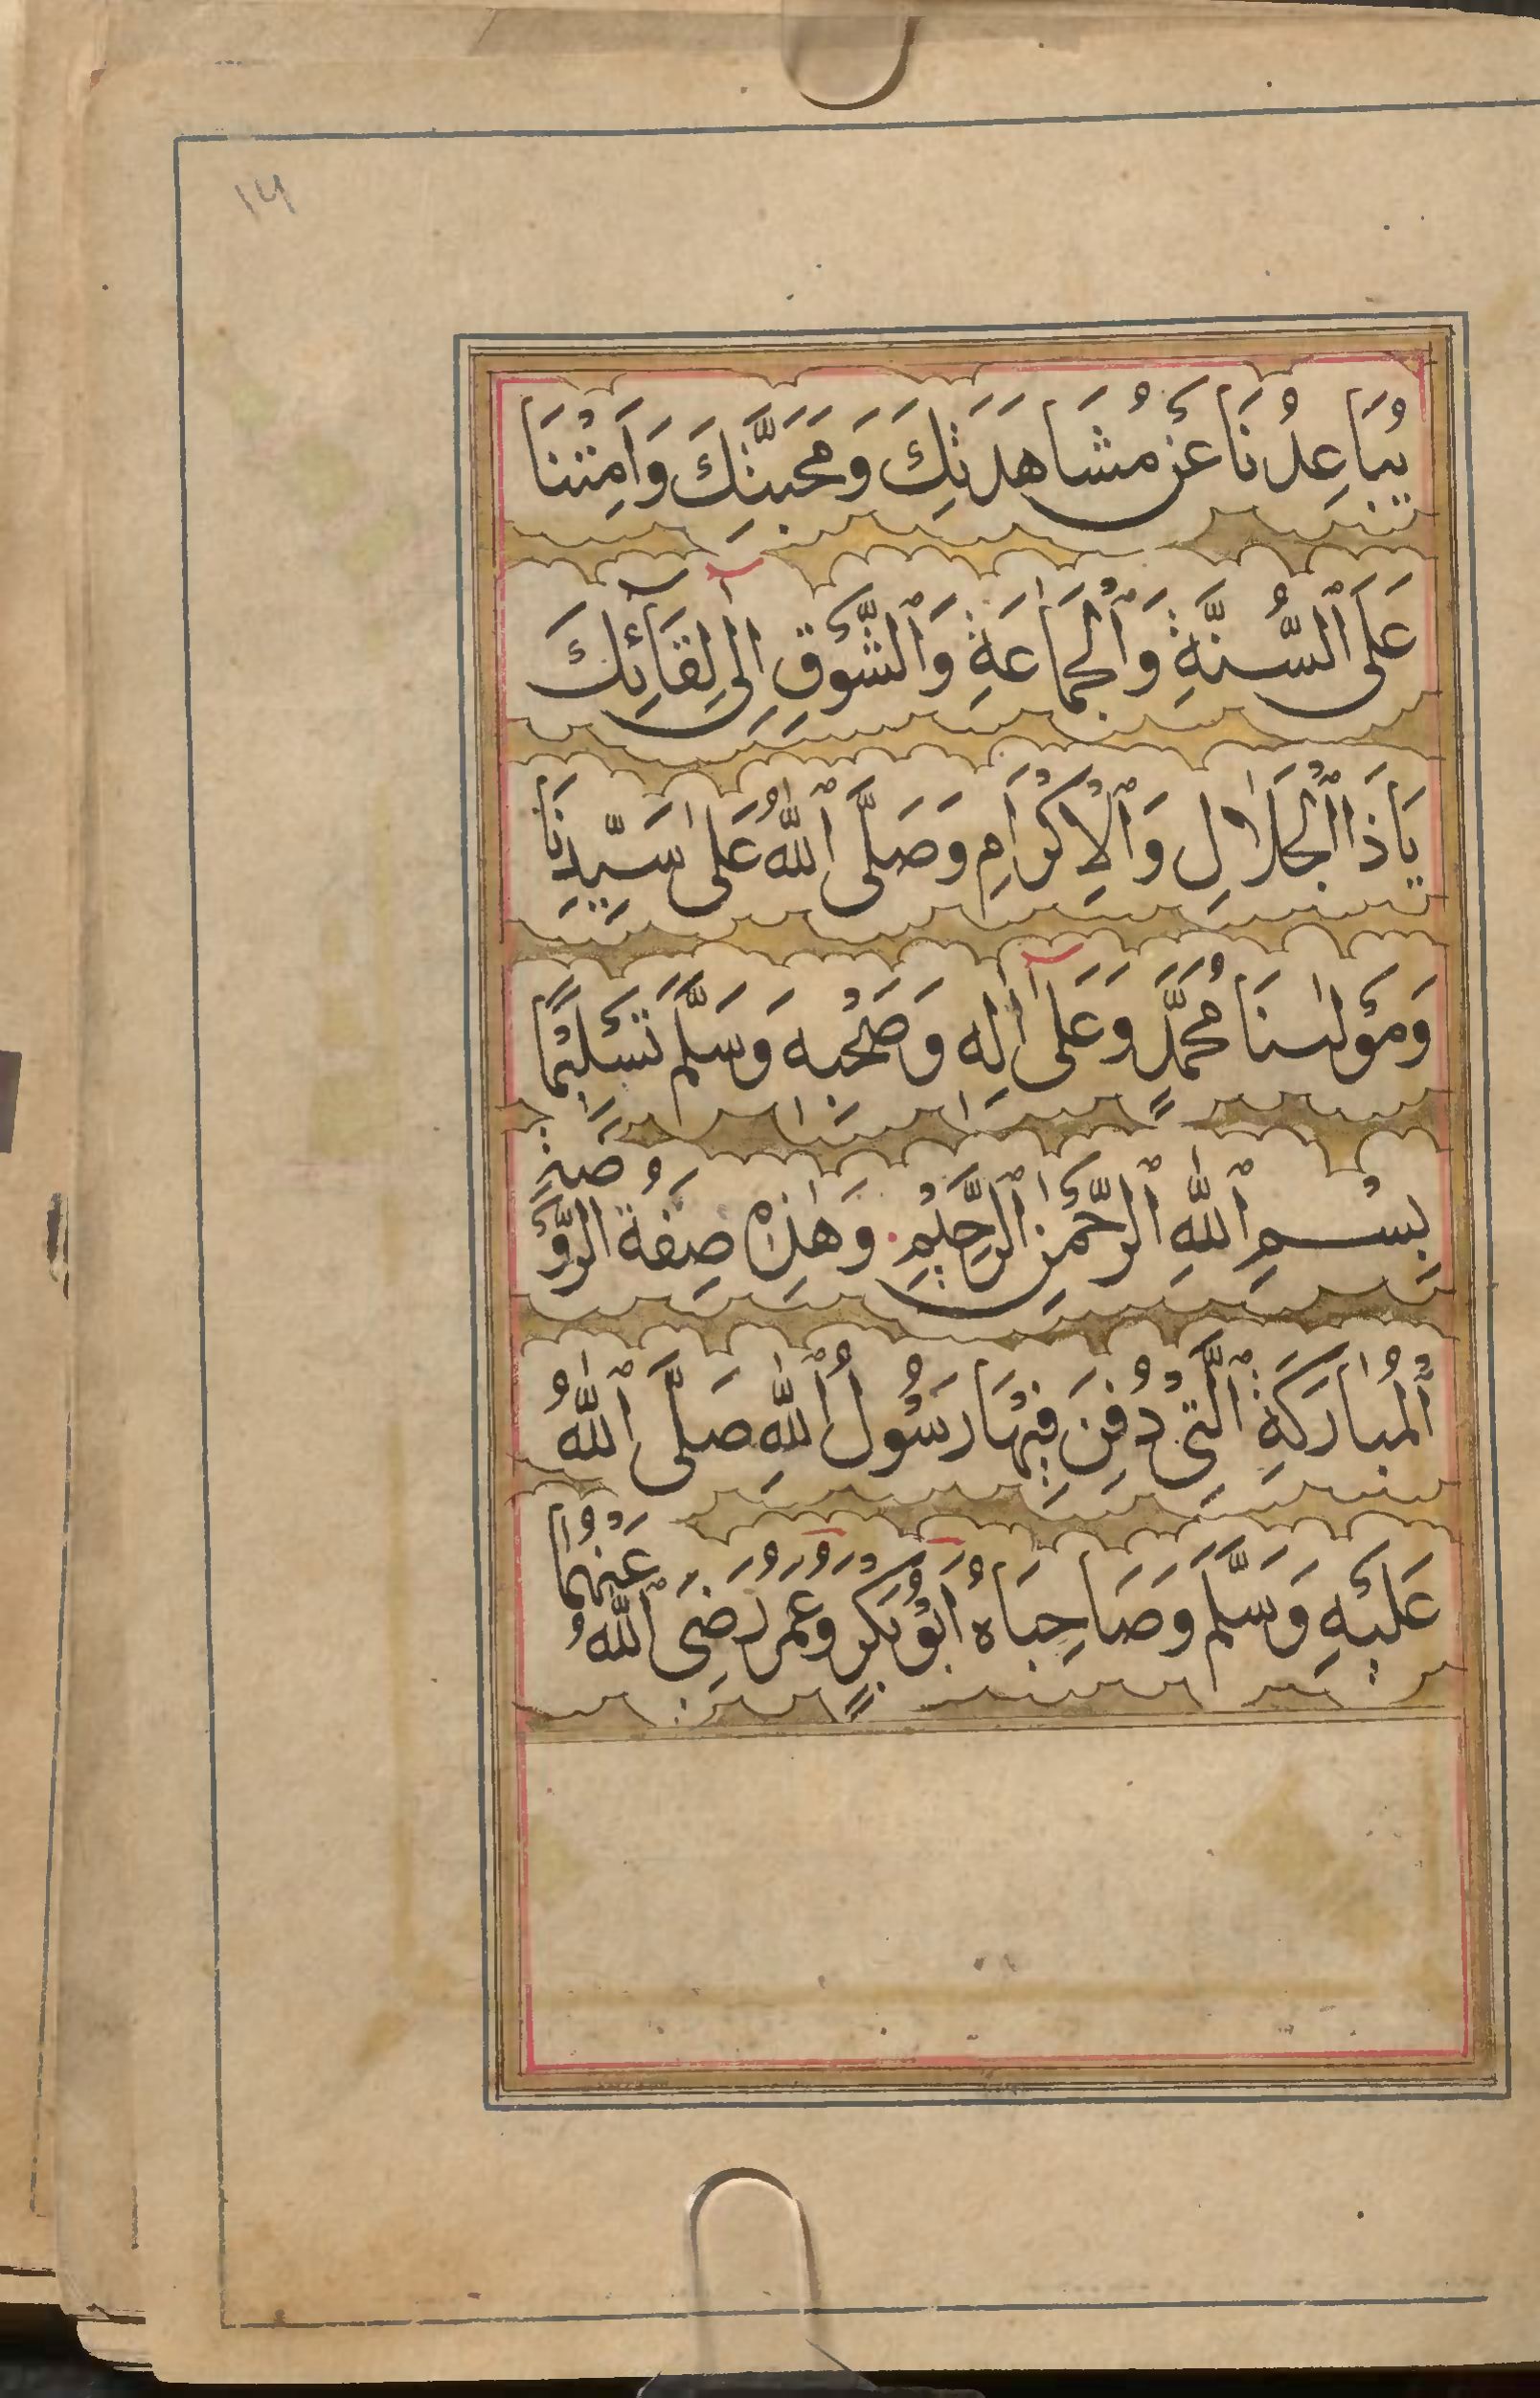 ١٤
يُبَاعِدُنَا عَنْ مُشَاهَدَتِكَ وَمَحَبَّتِكَ وَاَمِتْنَا
عَلَى ٱلسُّنَّةِ وَٱلْجَمَاعَةِ وَٱلشَّوْقِ اِلٰى لِقَائِكَ
يَا ذَا ٱلْجَلَالِ وَٱلْاِكْرَامِ وَصَلَّى ٱللّٰهُ عَلٰى سَيِّدِنَا
وَمَوْلٰنَا مُحَمَّدٍ وَعَلَى اٰلِهٖ وَصَحْبِهٖ وَسَلَّمَ تَسْلِيْمًا
بِسْمِ ٱللّٰهِ ٱلرَّحْمٰنِ ٱلرَّحِيْمِ وَهٰذِهْ صِفَةُ الرَّوْضَةِ
ٱلْمُبَارَكَةِ ٱلَّتِيْ دُفِنَ فِيْهَا رَسُوْلُ ٱللّٰهِ صَلَّى ٱللّٰهُ
عَلَيْهِ وَسَلَّمَ وَصَاحِبَاهُ اَبُوْ بَكْرٍ وَعُمَرُ رَضِيَ ٱللّٰهُ عَنْهُمَا